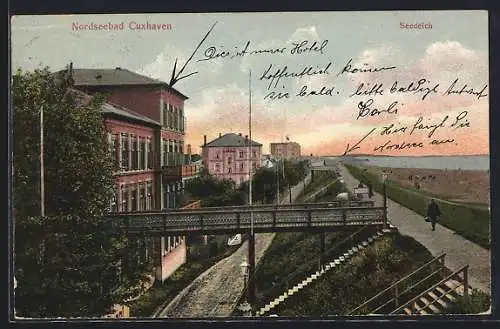 Nordseebad Cuxhaven
Seedeich
Dies ist unser Hotel
hoffentlich kommen
sie bald. bitte baldige antwort
Carli
Hier fängt die
Nordsee an.